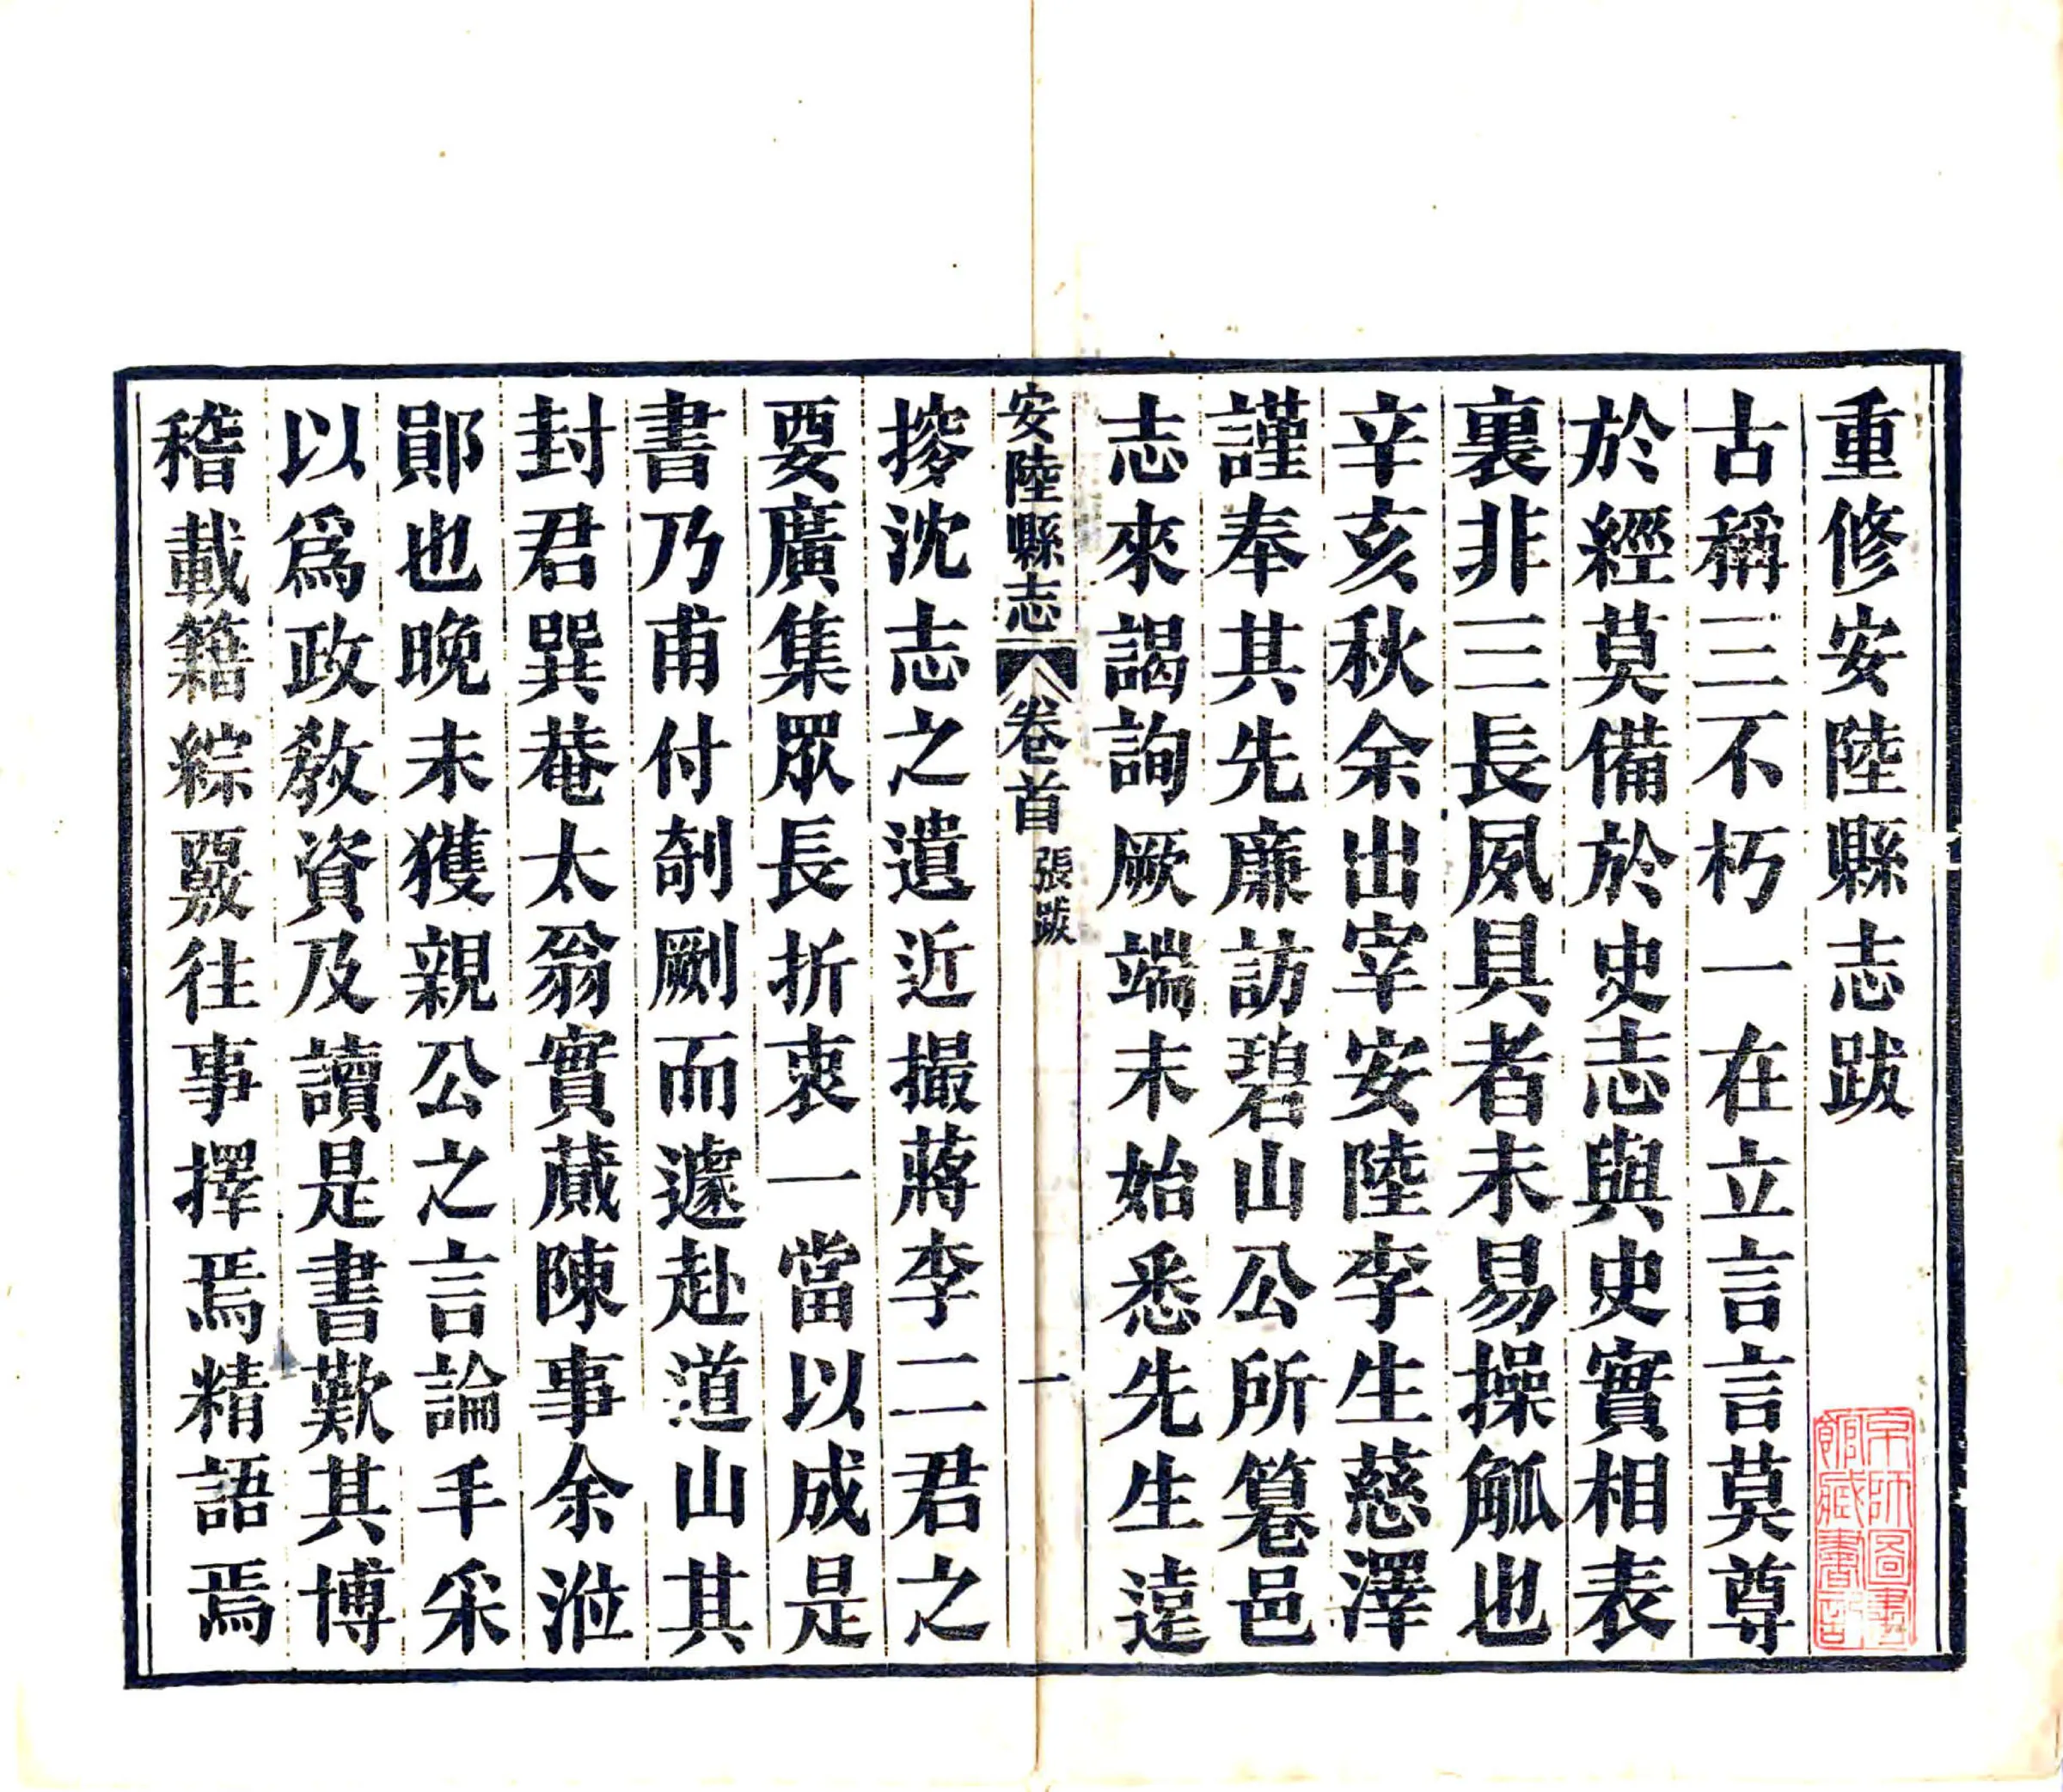 重修安陸縣志跋
古稱三不朽一在立言言莫尊
於經莫備於史志與史實相表
裏非三長夙具者未易操觚也
辛亥秋余出宰安陸李生慈澤
謹奉其先廉訪碧山公所篹邑
志來謁詢厥端末始悉先生遠
沈志之遺近撮蔣李二君之
要廣集眾長折衷一當以成是
書乃甫付剞劂而遽赴道山其
封君巽菴太翁實蕆陳事余涖
鄖也晚未獲親公之言論手采
以爲政敎資及讀是書歎其博
稽載籍綜覈往事擇焉精語焉
安陸縣志
卷首
張跋
一
京師圖書
館藏書記